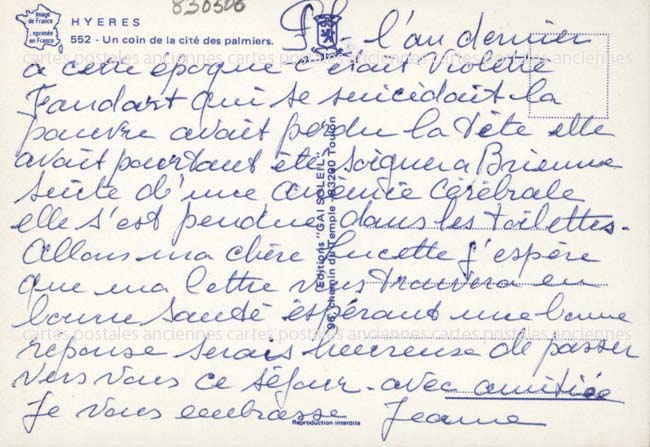 830506
Image de France
Imprimée en France
HYERES
552 - Un coin de la cité des palmiers.
l'an dernier
a cette époque c'était Violette
Faudart qui se suicidait la
pauvre avait perdu la tête elle
avait pourtant été soigner a Brienne
suite d'une anémie cérébrale
elle s'est pendue dans les toilettes.
Allons ma chère Lucette j'espère
que ma lettre vous trouvera en
bonne santé espérant une bonne
reponse serais heureuse de passer
vers vous ce séjour - avec amitiée
Je vous embrasse Jeanne
Editions "GAI SOLEIL"
96, chemin du Temple - 83200 Toulon
Reproduction interdite
cartes postales anciennes cartes postales anciennes cartes postales anciennes
cartes postales anciennes cartes postales anciennes cartes postales anciennes